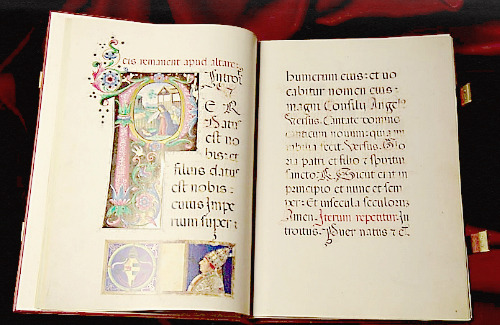 cis remanent apud altare
Introi
E R
Natus
est no
bis: et
filius datus
est nobis:
cuius Impe
rium super:
humerum eius: et uo
cabitur nomen eius:
magni Consilij Angelꝰ
Versus. Cantate domino
canticum nouum: quia mi
rabilia fecit. Versus. Glo
ria patri et filio et spiritui
sancto. R. Sicut erat in
principio et nunc et sem
per: Et insecula seculorum
Amen. Iterum repetitur. In
troitus. Puer natus &c.